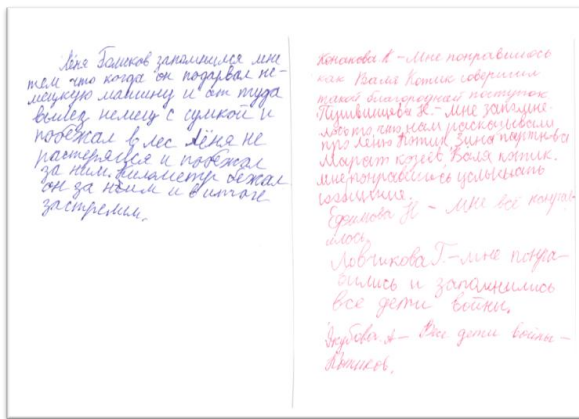 Лёня Голиков запомнился мне
тем что когда он подарвал не-
мецкую машину и от туда
вылез немец с сумкой и
побежал в лес Лёня не
растерялся и побежал
за ним. километр бежал
он за неим и в итоге
застрелил.
Конакова К - Мне понравилось
как Валя Котик совершил
такой благородный поступок
Н. - Мне запомне-
лось то, что нам расказывали
про Лёню Котик, Зина партнова
Марат козей, Валя котик.
мне понравилось услышать
Ефимова Н - Мне всё понрав
илось
Ловчикова Г. - мне понра-
вились и запомнились
все дети войны.
Якубова А - Все дети войны -